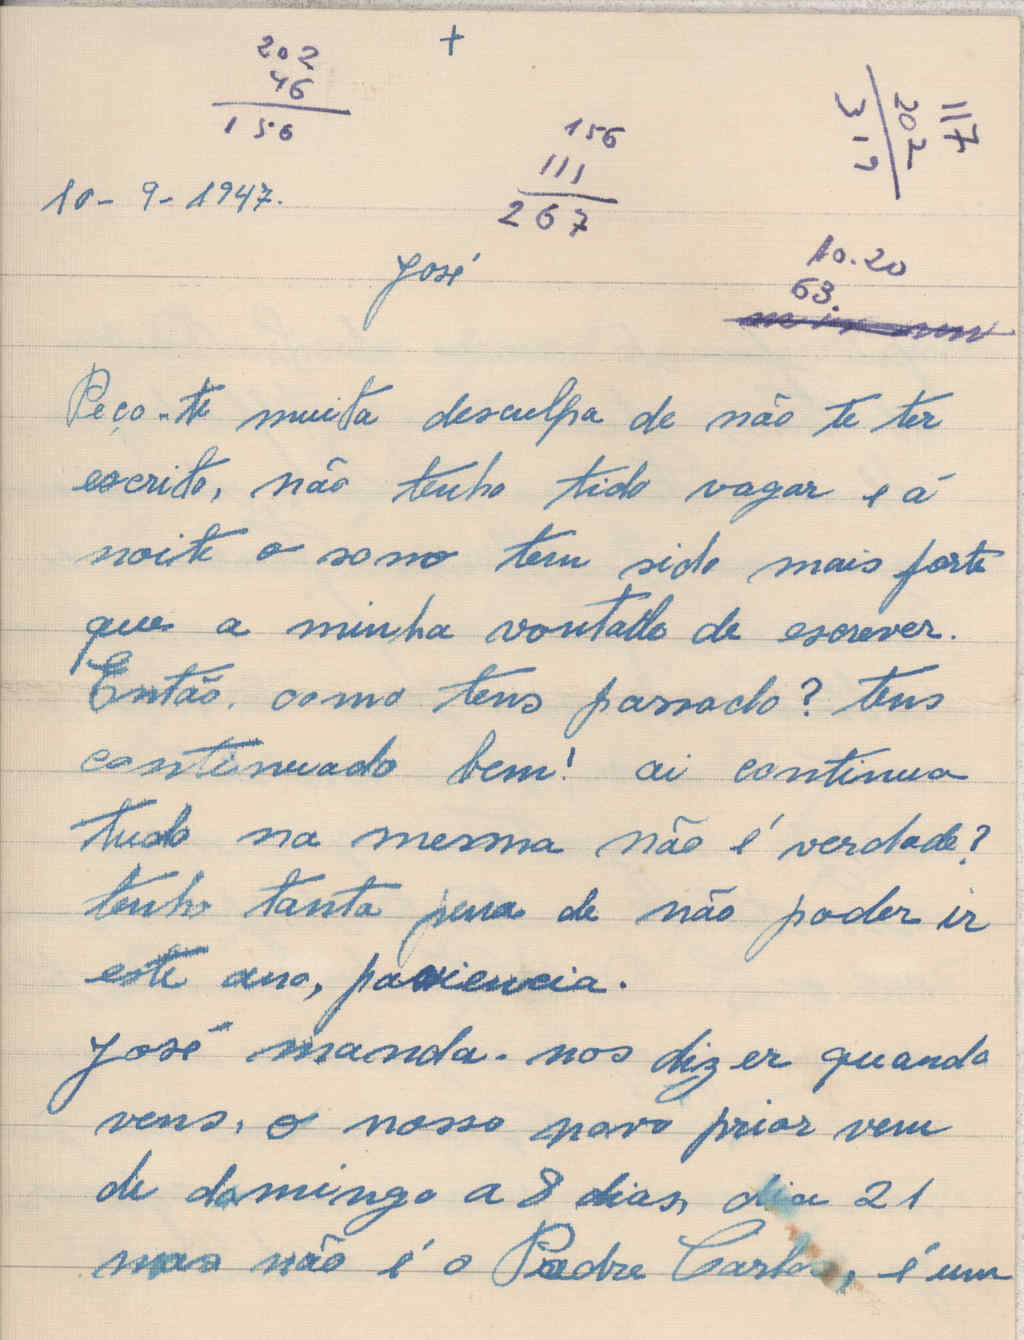 +
202
46
156
156
111
267
117
202
319
10-9-1947.
José
10.20
63.
Peço-te muita desculpa de não te ter
escrito, não tenho tido vagar e á
noite o sono tem sido mais forte
que a minha vontade de escrever.
Então, como tens passado? tens
continuado bem! ai continua
tudo na mesma não é verdade?
tenho tanta pena de não poder ir
este ano, paciencia.
José manda-nos dizer quando
vens, o nosso novo prior vem
de domingo a 8 dias, dia 21
mas não é o Padre Carlos, é um